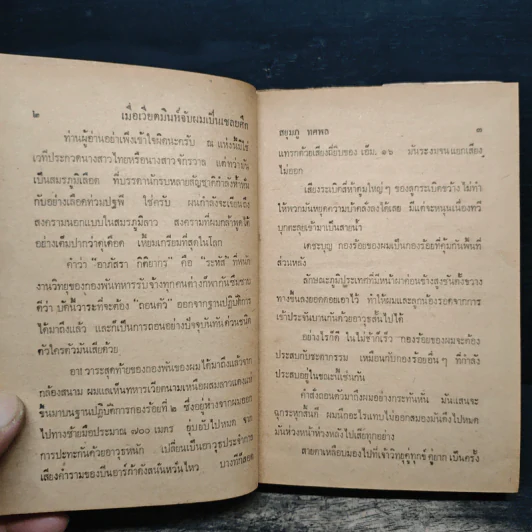 ๒ เมื่อเวียดมินห์จับผมเป็นเชลยศึก
ท่านผู้อ่านอย่าเพิ่งเข้าใจผิดนะครับ ณ แห่งนี้มิใช่
เวทีประกวดนางสาวไทยหรือนางสาวจักรวาล แต่ทว่ามัน
เป็นสมรภูมิเลือด ที่บรรดานักรบหลายสัญชาติกำลังห้ำหั่น
กันอย่างเลือดท่วมปฐพี ใช่ครับ ผมกำลังจะเขียนถึง
สงครามนอกแบบในสมรภูมิลาว สงครามที่ผมกล้าพูดได้
อย่างเต็มปากว่าดุเดือด เหี้ยมเกรียมที่สุดในโลก
คำว่า "อาภัสรา กิติยากร" คือ "รหัส" ที่พนัก
งานวิทยุของกองพันทหารรับจ้างทุกคนต่างก็พากันซึมซาบ
ดีว่า บัดนี้วาระที่จะต้อง "ถอนตัว" ออกจากฐานปฏิบัติการ
ได้มาถึงแล้ว และก็เป็นการถอนอย่างปัจจุบันทันด่วนชนิด
ตัวใครตัวมันเสียด้วย
วาระสุดท้ายของกองพันของผมได้มาถึงแล้วจาก
กล้องสนาม ผมแลเห็นทหารเวียดนามเหนือ
ขึ้นมาบนฐานปฏิบัติการกองร้อยที่ ๒ ซึ่งอยู่ห่างจากผมออก
ไปทางซ้ายมือประมาณ ๗๐๐ เมตร
การปะทะกันด้วยอาวุธหนัก เปลี่ยนเป็นอาวุธประจำกาย
เสียงคำรามของปืนอาร์ก้าดังสนั่นหวั่นไหว บางทีก็สอด
สยุมภู ทศพล ๓
แทรกด้วยเสียงยิงของ เอ็ม. ๑๖ มันระงมจนแยกเสียง
ไม่ออก
เสียงระเบิดสี่ห้าตูมใหญ่ ๆ ของลูกระเบิดขว้าง ไม่ทำ
ให้พวกมันหยุดความบ้าคลั่งลงได้เลย มีแต่จะหนุนเนื่องทวี
บุกตะลุยเข้ามาเป็นสายน้ำ
เดชะบุญ กองร้อยของผมเป็นกองร้อยที่คุ้มกันพื้นที่
ส่วนหลัง
ลักษณะภูมิประเทศที่มีหน้าผาค่อนข้างสูงชันตั้งขวาง
ทางขึ้นลงยอดดอยเอาไว้ ทำให้ผมและลูกน้องรอดจากการ
เข้าประชันบานกันด้วยอาวุธสั้นไปได้
อย่างไรก็ดี ในไม่ช้าก็เร็ว กองร้อยของผมจะต้อง
ประสบกับชะตากรรม เหมือนกับกองร้อยอื่น ๆ ที่กำลัง
ประสบอยู่ในขณะนี้เช่นกัน
คำสั่งถอนตัวมาถึงผมอย่างกระทันหัน มันแสนจะ
ฉุกละหุกสิ้นดี ผมนึกอะไรแทบไม่ออกสมองมันตึงไปหมด
มันห่วงหน้าห่วงหลังไปเสียทุกอย่าง
สายตาเหลือบมองไปที่เจ้าวิทยุคู่ทุกข์ คู่ยาก เป็นครั้ง